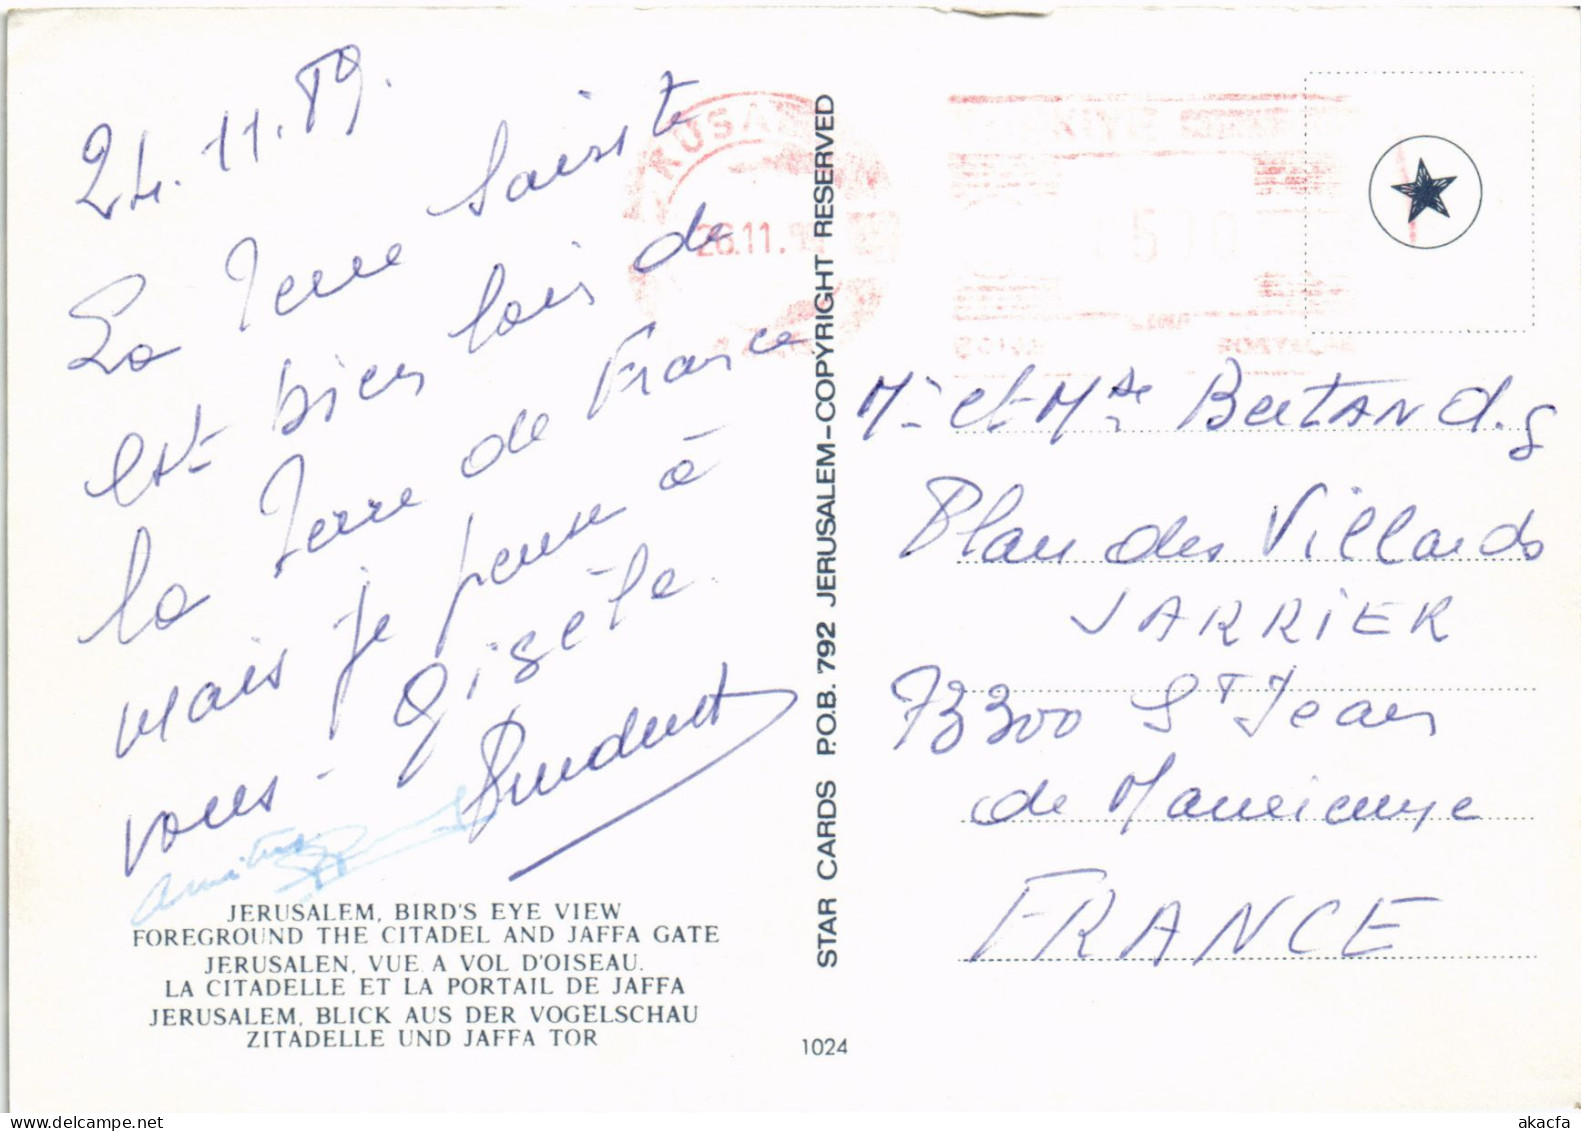 24.11.89.
La Terre Sainte
est bien loin de
la Terre de France
mais je pense à
vous - Gisèle.
JERUSALEM, BIRD'S EYE VIEW
FOREGROUND THE CITADEL AND JAFFA GATE
JERUSALEN, VUE A VOL D'OISEAU.
LA CITADELLE ET LA PORTAIL DE JAFFA
JERUSALEM, BLICK AUS DER VOGELSCHAU
ZITADELLE UND JAFFA TOR
STAR CARDS P.O.B. 792 JERUSALEM-COPYRIGHT RESERVED
1024
26.11.
Mr et Mme
Plan des Villards
JARRIER
73300 St Jean
de Maurienne
FRANCE
delcampe.net
akacfa